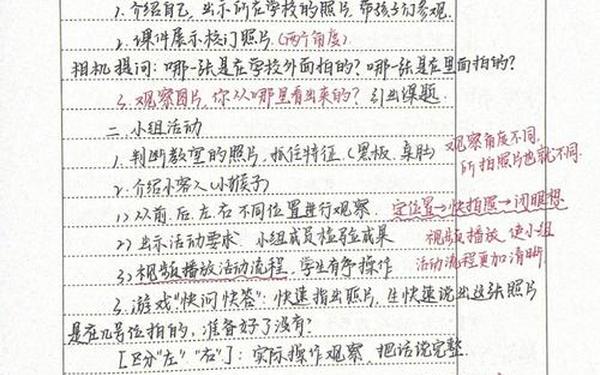 1. 介绍自己, 出示所在学校的照片, 带孩子们参观.
2. 课件展示校门照片. (两个角度)
相机提问: 哪一张是在学校外面拍的? 哪一张是在里面拍的?
3. 观察图片, 你从哪里看出来的? 引出课题.
二. 小组活动
1. 判断教室的照片, 抓住特征. (黑板、桌肚)
观察角度不同,
所拍照片也就不同.
2. 介绍小客人 (小猴子)
1) 从前、后、左、右不同位置进行观察. 定位置→快拍照→闭眼想
2) 出示活动要求. 小组成员检验成果
视频播放, 使小组
3) 视频播放活动流程, 学生有争操作
活动流程更加清晰
3. 游戏"快问快答": 快速指出照片, 生快速说出这张照片
是在几号位拍的, 准备好了没有?
[区分"左" "右"]: 实际操作观察, 把话说完整.